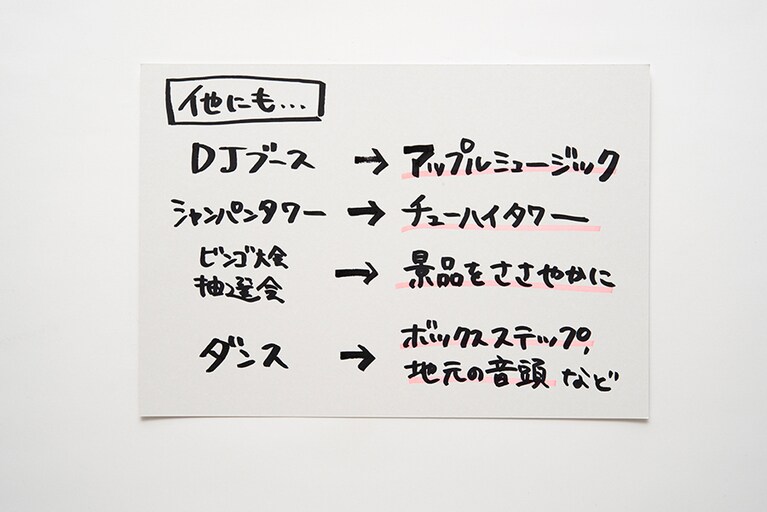 他にも…
DJブース → アップルミュージック
シャンパンタワー → チューハイタワー
ビンゴ大会
抽選会 → 景品をささやかに
ダンス → ボックスステップ,
地元の音頭 など